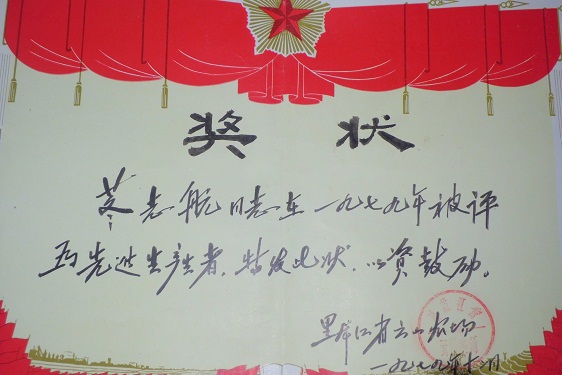 奖状
志航同志在一九七九年被评
为先进生产者，特发此状，以资鼓励。
黑龙江省云山农场
一九七九年十二月